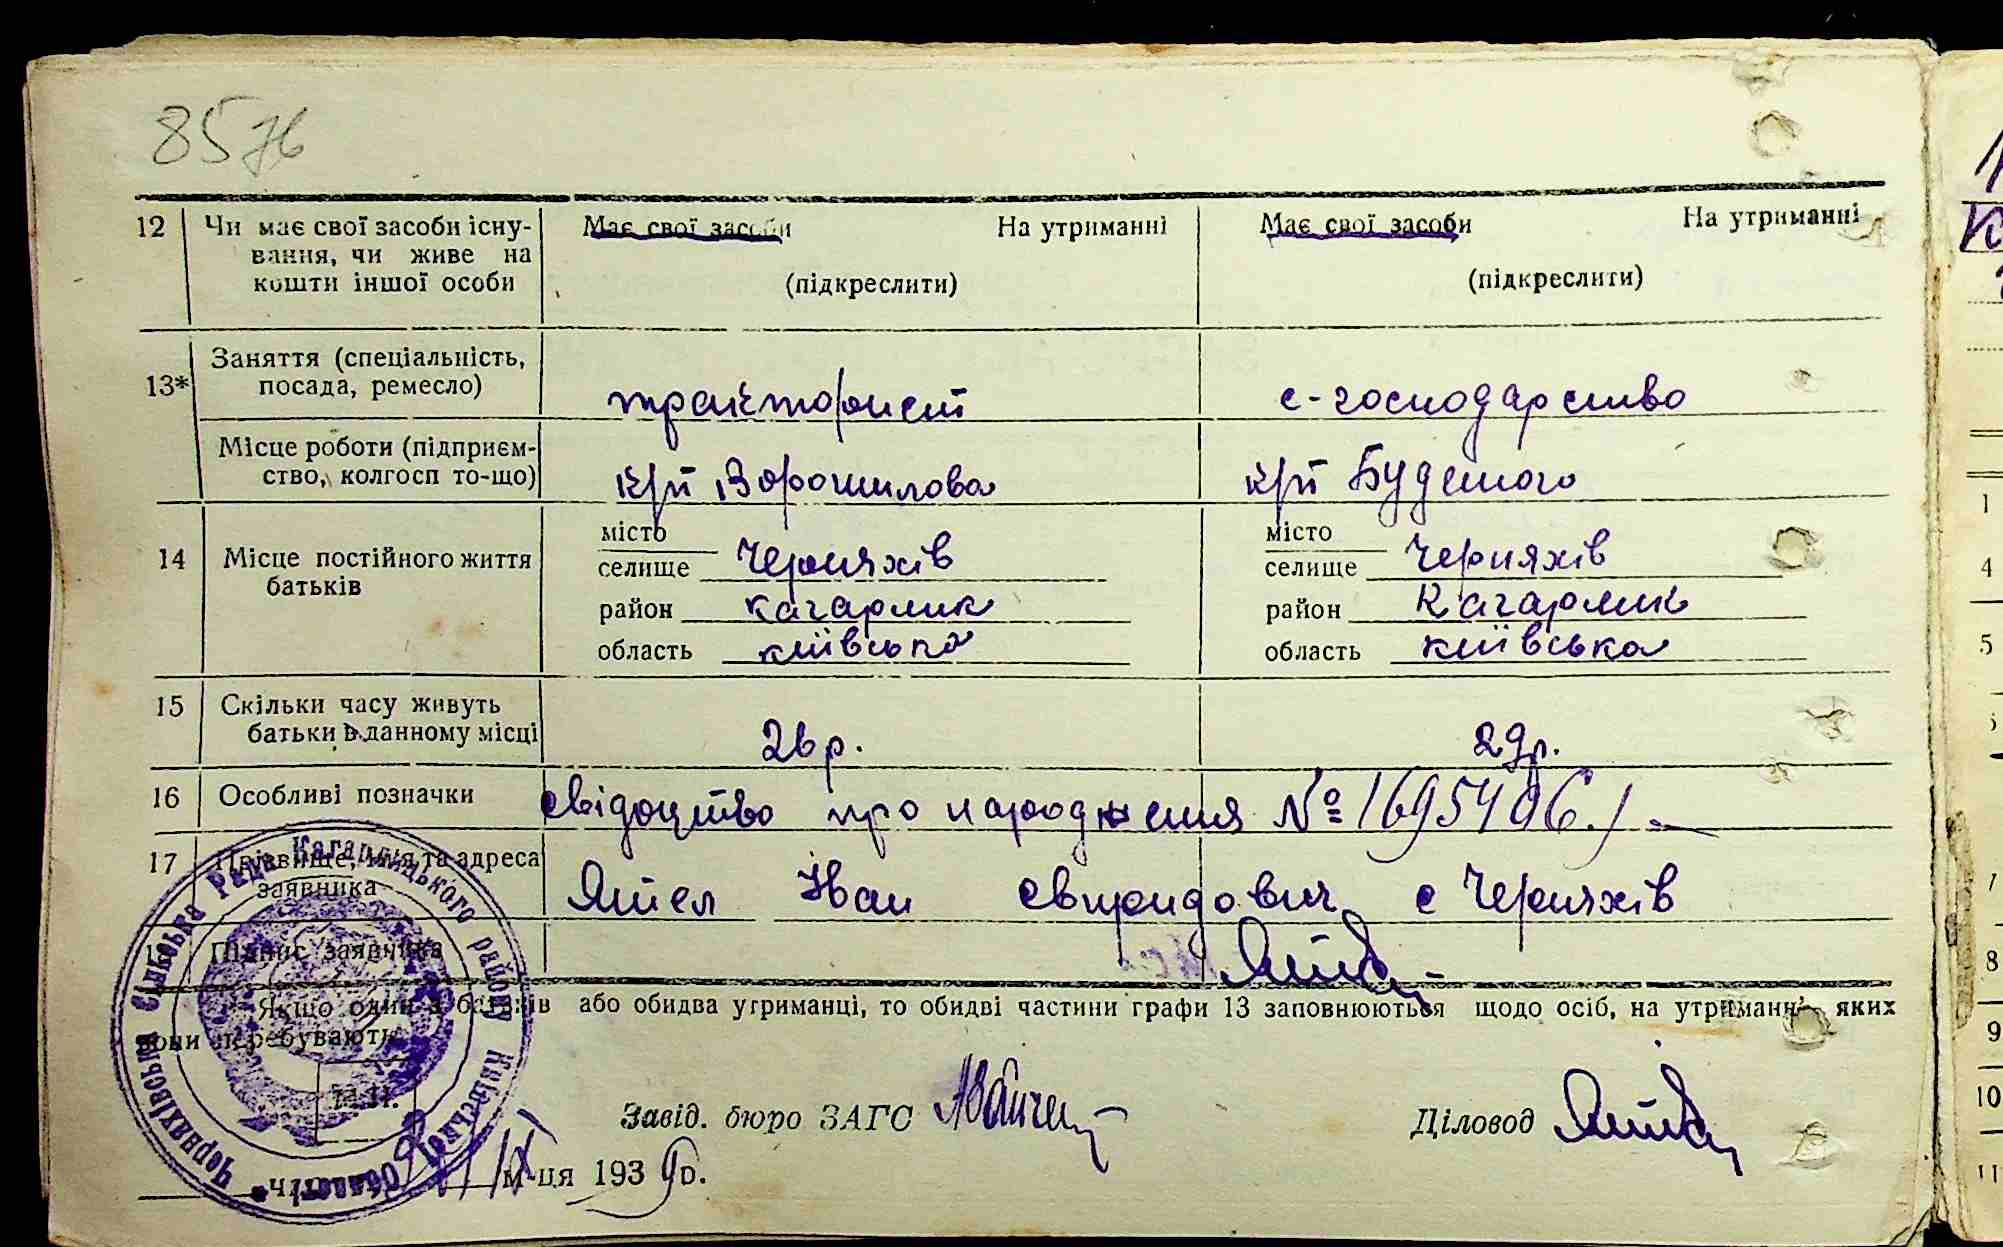 12 Чи має свої засоби існу- Має свої засоби На утриманні Має свої засоби На утриманні
вання, чи живе на
кошти іншої особи (підкреслити) (підкреслити)
13* Заняття (спеціальність,
посада, ремесло) тракторист с-господарство
Місце роботи (підприєм-
ство, колгосп то-що) к/рп Ворошилова к/рп Буденого
місто місто
14 Місце постійного життя селище Черняхів селище Черняхів
батьків район кагарлик район Кагарлик
область київська область київська
15 Скільки часу живуть
батьки в данному місці 26 р. 29р.
16 Особливі позначки свідоцтво про народження №
17 Прізвище, ім'я та адреса
заявника Іван с Черняхів
Підпис заявника
* Якщо один з батьків або обидва утриманці, то обидві частини графи 13 заповнюються щодо осіб, на утриманні яких
вони перебувають.
М.П.
Завід. бюро ЗАГС Діловод
IX м-ця 1939 р.
Черняхівська Сільська Рада Кагарлицького району Київської Області